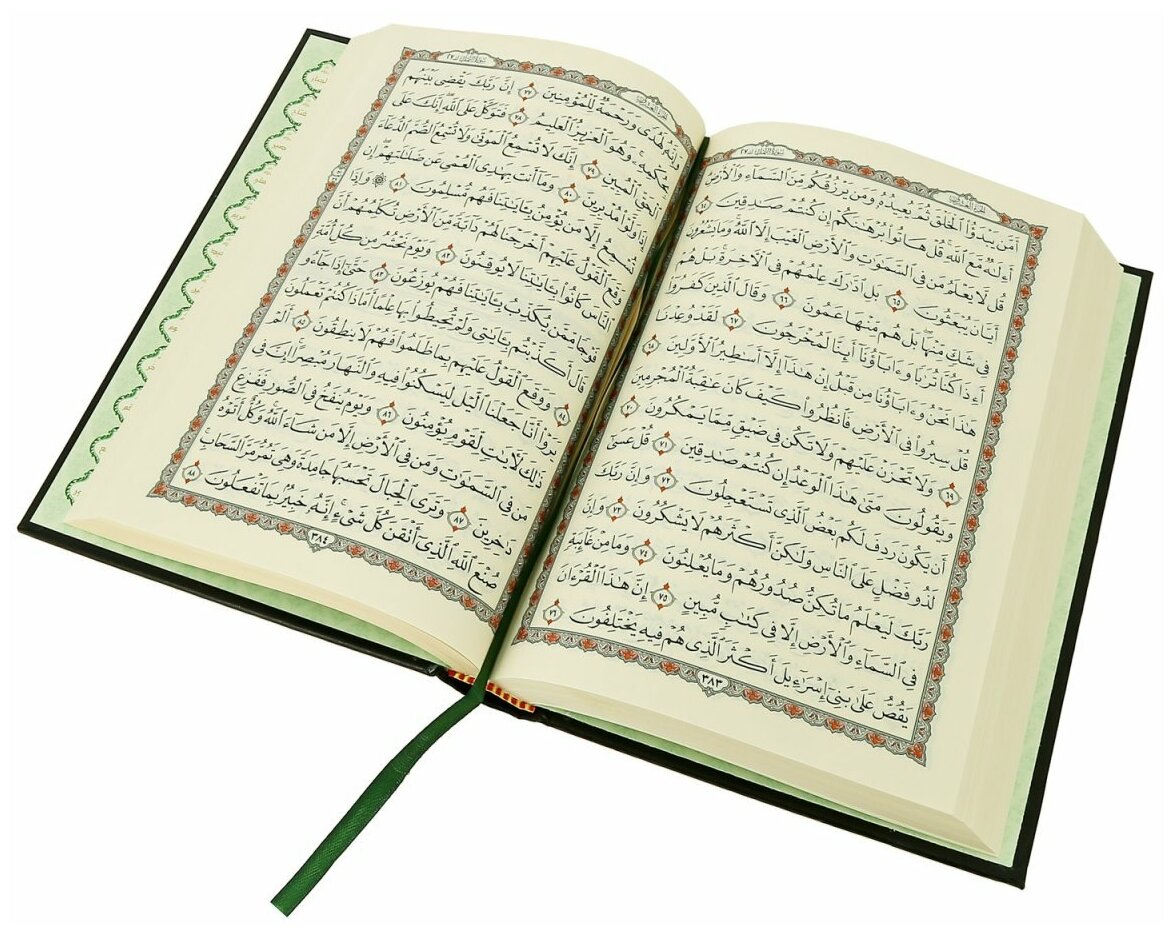 الجزء العشرون
سورة النمل ٢٧
أَمَّن يَبْدَؤُا۟ ٱلْخَلْقَ ثُمَّ يُعِيدُهُۥ وَمَن يَرْزُقُكُم مِّنَ ٱلسَّمَآءِ وَٱلْأَرْضِ
أَءِلَٰهٌ مَّعَ ٱللَّهِ قُلْ هَاتُوا۟ بُرْهَٰنَكُمْ إِن كُنتُمْ صَٰدِقِينَ ٦٤
قُل لَّا يَعْلَمُ مَن فِى ٱلسَّمَٰوَٰتِ وَٱلْأَرْضِ ٱلْغَيْبَ إِلَّا ٱللَّهُ وَمَا يَشْعُرُونَ
أَيَّانَ يُبْعَثُونَ ٦٥ بَلِ ٱدَّٰرَكَ عِلْمُهُمْ فِى ٱلْءَاخِرَةِ بَلْ هُمْ
فِى شَكٍّ مِّنْهَا بَلْ هُم مِّنْهَا عَمُونَ ٦٦ وَقَالَ ٱلَّذِينَ كَفَرُوٓا۟
أَءِذَا كُنَّا تُرَٰبًا وَءَابَآؤُنَآ أَئِنَّا لَمُخْرَجُونَ ٦٧ لَقَدْ وُعِدْنَا
هَٰذَا نَحْنُ وَءَابَآؤُنَا مِن قَبْلُ إِنْ هَٰذَآ إِلَّآ أَسَٰطِيرُ ٱلْأَوَّلِينَ ٦٨
قُلْ سِيرُوا۟ فِى ٱلْأَرْضِ فَٱنظُرُوا۟ كَيْفَ كَانَ عَٰقِبَةُ ٱلْمُجْرِمِينَ
٦٩ وَلَا تَحْزَنْ عَلَيْهِمْ وَلَا تَكُن فِى ضَيْقٍ مِّمَّا يَمْكُرُونَ ٧٠
وَيَقُولُونَ مَتَىٰ هَٰذَا ٱلْوَعْدُ إِن كُنتُمْ صَٰدِقِينَ ٧١ قُلْ عَسَىٰٓ
أَن يَكُونَ رَدِفَ لَكُم بَعْضُ ٱلَّذِى تَسْتَعْجِلُونَ ٧٢ وَإِنَّ رَبَّكَ
لَذُو فَضْلٍ عَلَى ٱلنَّاسِ وَلَٰكِنَّ أَكْثَرَهُمْ لَا يَشْكُرُونَ ٧٣ وَإِنَّ
رَبَّكَ لَيَعْلَمُ مَا تُكِنُّ صُدُورُهُمْ وَمَا يُعْلِنُونَ ٧٤ وَمَا مِنْ غَآئِبَةٍ
فِى ٱلسَّمَآءِ وَٱلْأَرْضِ إِلَّا فِى كِتَٰبٍ مُّبِينٍ ٧٥ إِنَّ هَٰذَا ٱلْقُرْءَانَ
يَقُصُّ عَلَىٰ بَنِىٓ إِسْرَٰٓءِيلَ أَكْثَرَ ٱلَّذِى هُمْ فِيهِ يَخْتَلِفُونَ ٧٦
٣٨٣
الجزء العشرون
سورة النمل ٢٧
وَإِنَّهُۥ لَهُدًى وَرَحْمَةٌ لِّلْمُؤْمِنِينَ ٧٧ إِنَّ رَبَّكَ يَقْضِى بَيْنَهُم
بِحُكْمِهِۦ وَهُوَ ٱلْعَزِيزُ ٱلْعَلِيمُ ٧٨ فَتَوَكَّلْ عَلَى ٱللَّهِ إِنَّكَ عَلَى
ٱلْحَقِّ ٱلْمُبِينِ ٧٩ إِنَّكَ لَا تُسْمِعُ ٱلْمَوْتَىٰ وَلَا تُسْمِعُ ٱلصُّمَّ ٱلدُّعَآءَ
إِذَا وَلَّوْا۟ مُدْبِرِينَ ٨٠ وَمَآ أَنتَ بِهَٰدِى ٱلْعُمْىِ عَن ضَلَٰلَتِهِمْ إِن
تُسْمِعُ إِلَّا مَن يُؤْمِنُ بِـَٔايَٰتِنَا فَهُم مُّسْلِمُونَ ٨١ ۞ وَإِذَا
وَقَعَ ٱلْقَوْلُ عَلَيْهِمْ أَخْرَجْنَا لَهُمْ دَآبَّةً مِّنَ ٱلْأَرْضِ تُكَلِّمُهُمْ أَنَّ
ٱلنَّاسَ كَانُوا۟ بِـَٔايَٰتِنَا لَا يُوقِنُونَ ٨٢ وَيَوْمَ نَحْشُرُ مِن كُلِّ أُمَّةٍ
فَوْجًا مِّمَّن يُكَذِّبُ بِـَٔايَٰتِنَا فَهُمْ يُوزَعُونَ ٨٣ حَتَّىٰٓ إِذَا جَآءُو
قَالَ أَكَذَّبْتُم بِـَٔايَٰتِى وَلَمْ تُحِيطُوا۟ بِهَا عِلْمًا أَمَّاذَا كُنتُمْ تَعْمَلُونَ
٨٤ وَوَقَعَ ٱلْقَوْلُ عَلَيْهِم بِمَا ظَلَمُوا۟ فَهُمْ لَا يَنطِقُونَ ٨٥ أَلَمْ
يَرَوْا۟ أَنَّا جَعَلْنَا ٱلَّيْلَ لِيَسْكُنُوا۟ فِيهِ وَٱلنَّهَارَ مُبْصِرًا إِنَّ فِى
ذَٰلِكَ لَـَٔايَٰتٍ لِّقَوْمٍ يُؤْمِنُونَ ٨٦ وَيَوْمَ يُنفَخُ فِى ٱلصُّورِ فَفَزِعَ
مَن فِى ٱلسَّمَٰوَٰتِ وَمَن فِى ٱلْأَرْضِ إِلَّا مَن شَآءَ ٱللَّهُ وَكُلٌّ أَتَوْهُ
دَٰخِرِينَ ٨٧ وَتَرَى ٱلْجِبَالَ تَحْسَبُهَا جَامِدَةً وَهِىَ تَمُرُّ مَرَّ ٱلسَّحَابِ
صُنْعَ ٱللَّهِ ٱلَّذِىٓ أَتْقَنَ كُلَّ شَىْءٍ إِنَّهُۥ خَبِيرٌۢ بِمَا تَفْعَلُونَ ٨٨
٣٨٤